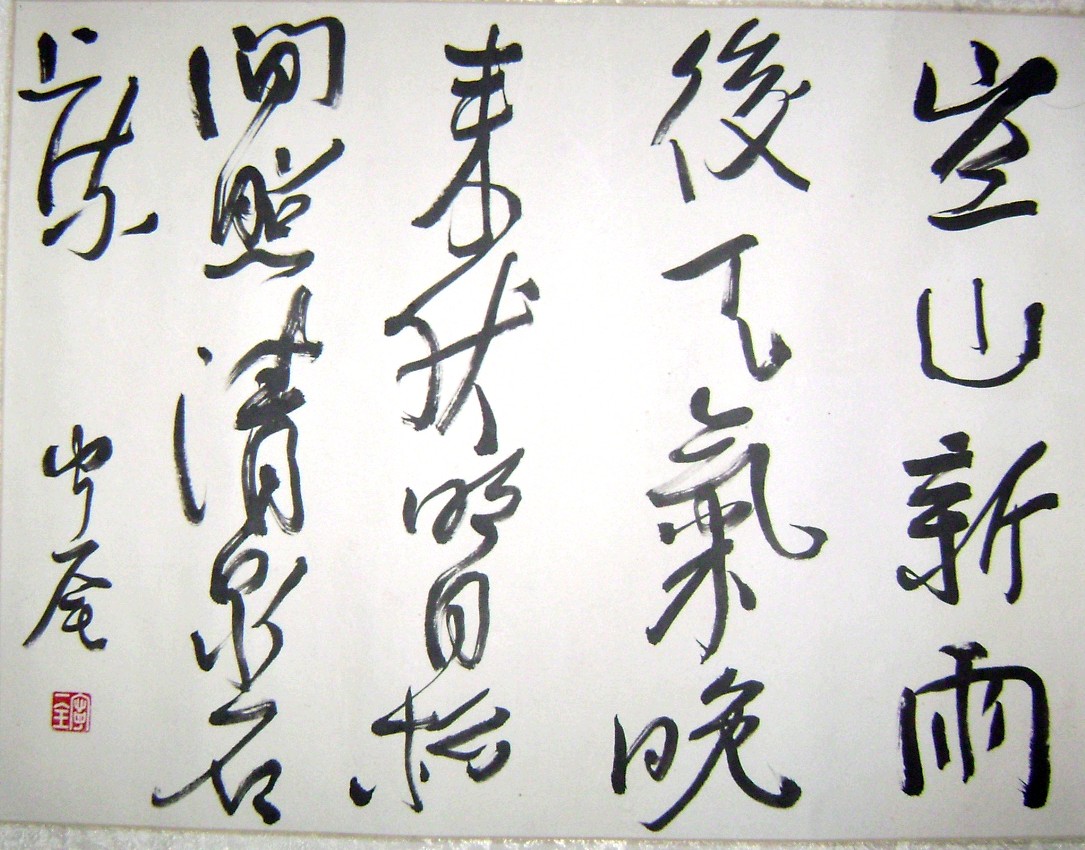 空山新雨
後天氣晚
来秋明月松
間照清泉石
上流